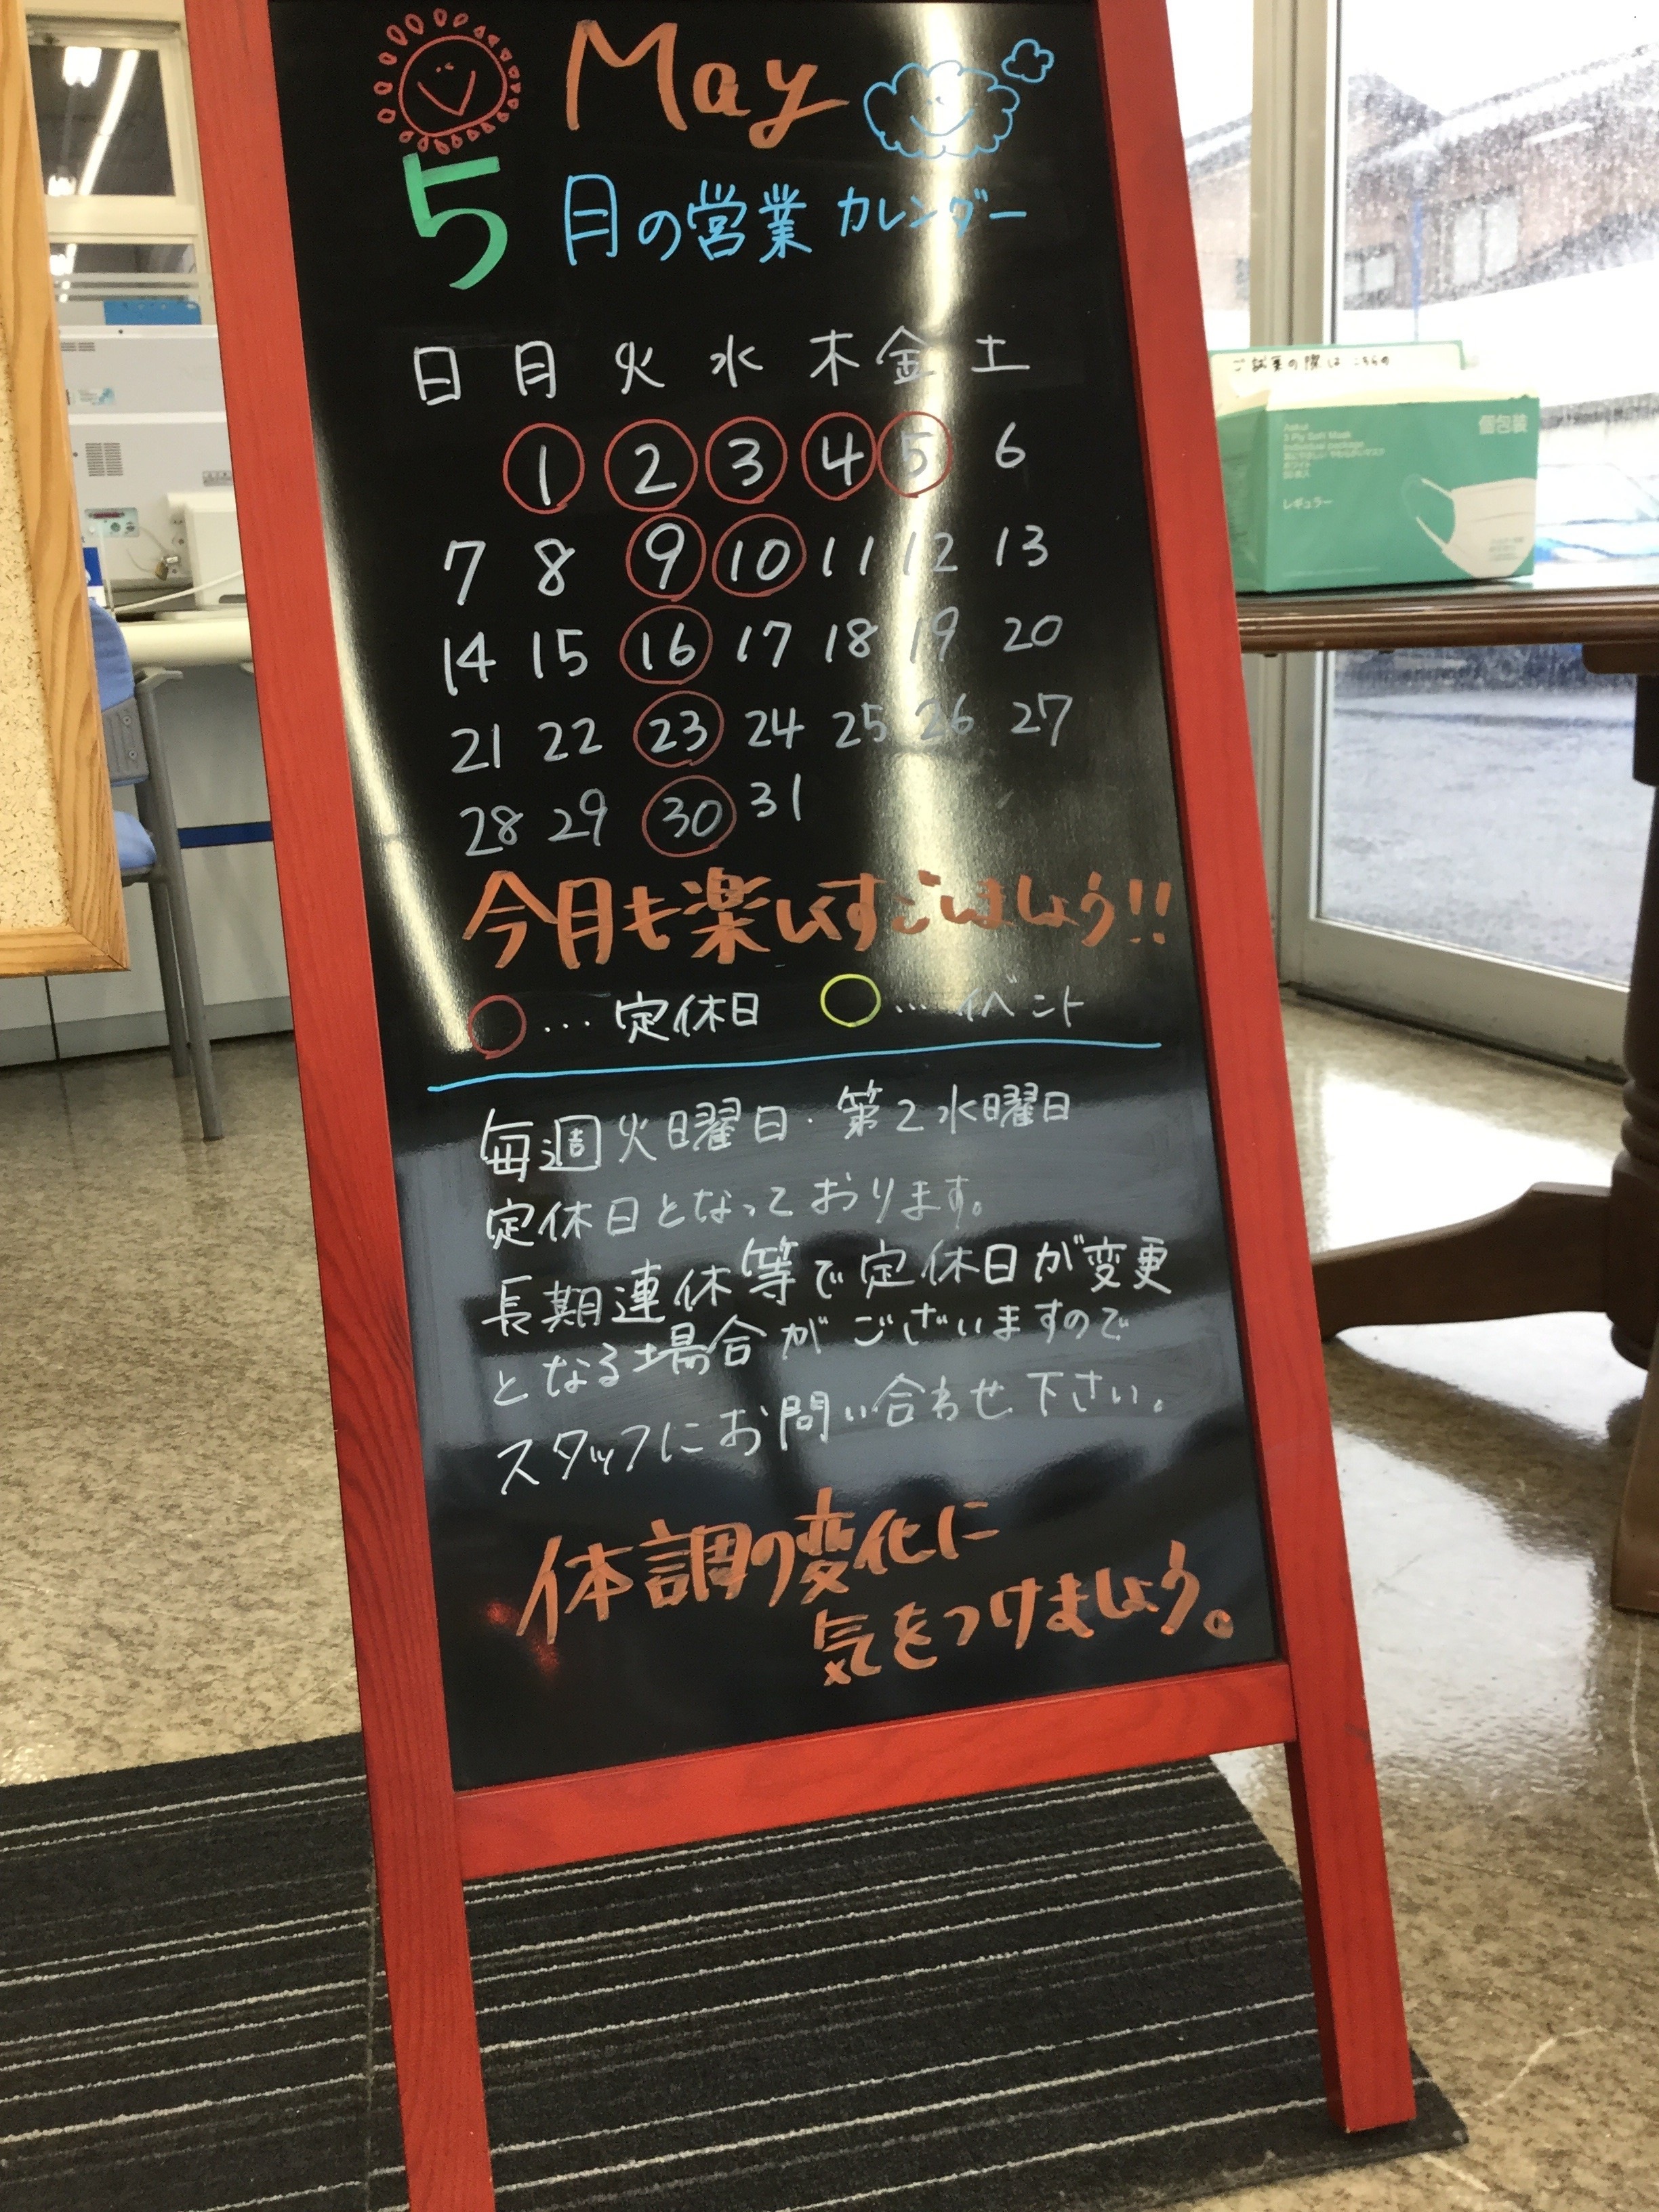 May
5月の営業カレンダー
日 月 火 水 木 金 土
1 2 3 4 5 6
7 8 9 10 11 12 13
14 15 16 17 18 19 20
21 22 23 24 25 26 27
28 29 30 31
今月も楽しくすごしましょう!!
○…定休日 ○…イベント
毎週火曜日・第2水曜日
定休日となっております。
長期連休等で定休日が変更
となる場合がございますので
スタッフにお問い合わせ下さい。
体調の変化に
気をつけましょう。
個包装
3 Ply Soft Mask
Individual package
ホワイト
レギュラー